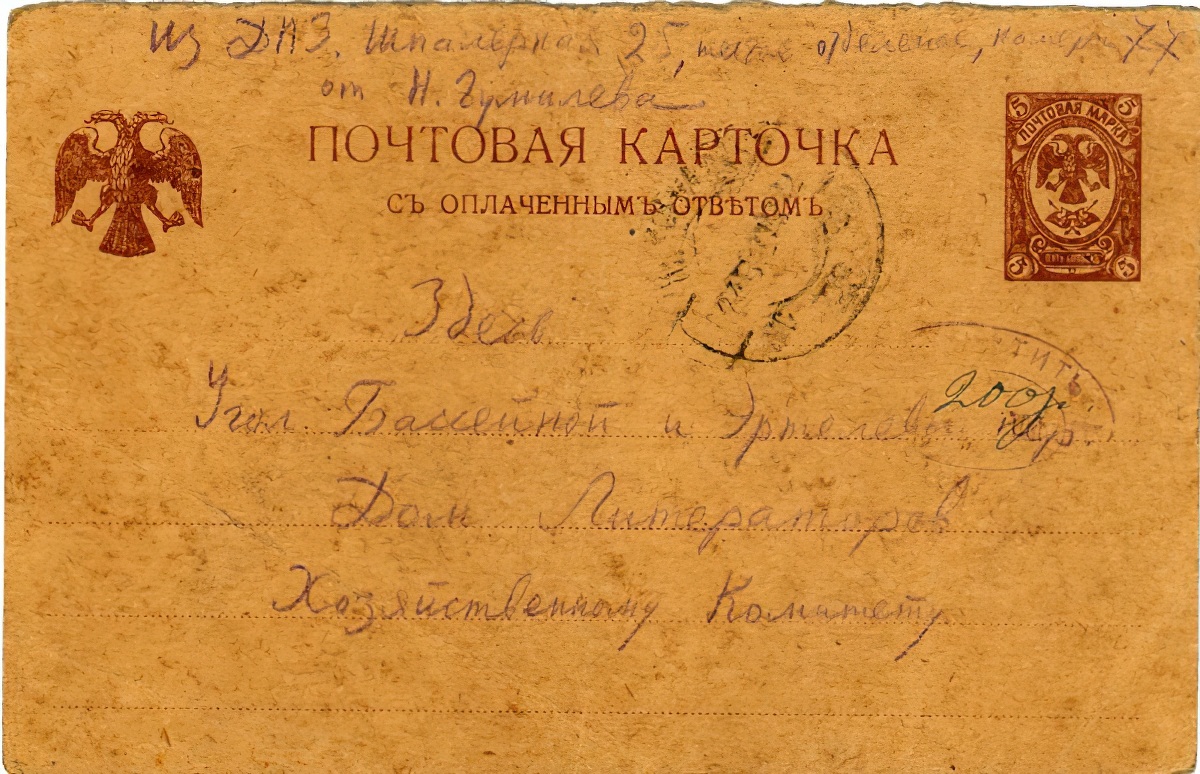 Из ДПЗ. Шпалерная 25, отделение, камера 77
от Н. Гумилева
ПОЧТОВАЯ КАРТОЧКА
СЪ ОПЛАЧЕННЫМЪ ОТВѢТОМЪ
5 5
ПОЧТОВАЯ МАРКА
5 5
Здесь
200р.
Угол Бассейной и Эртелева пер.
Дом Литераторов
Хозяйственному Комитету